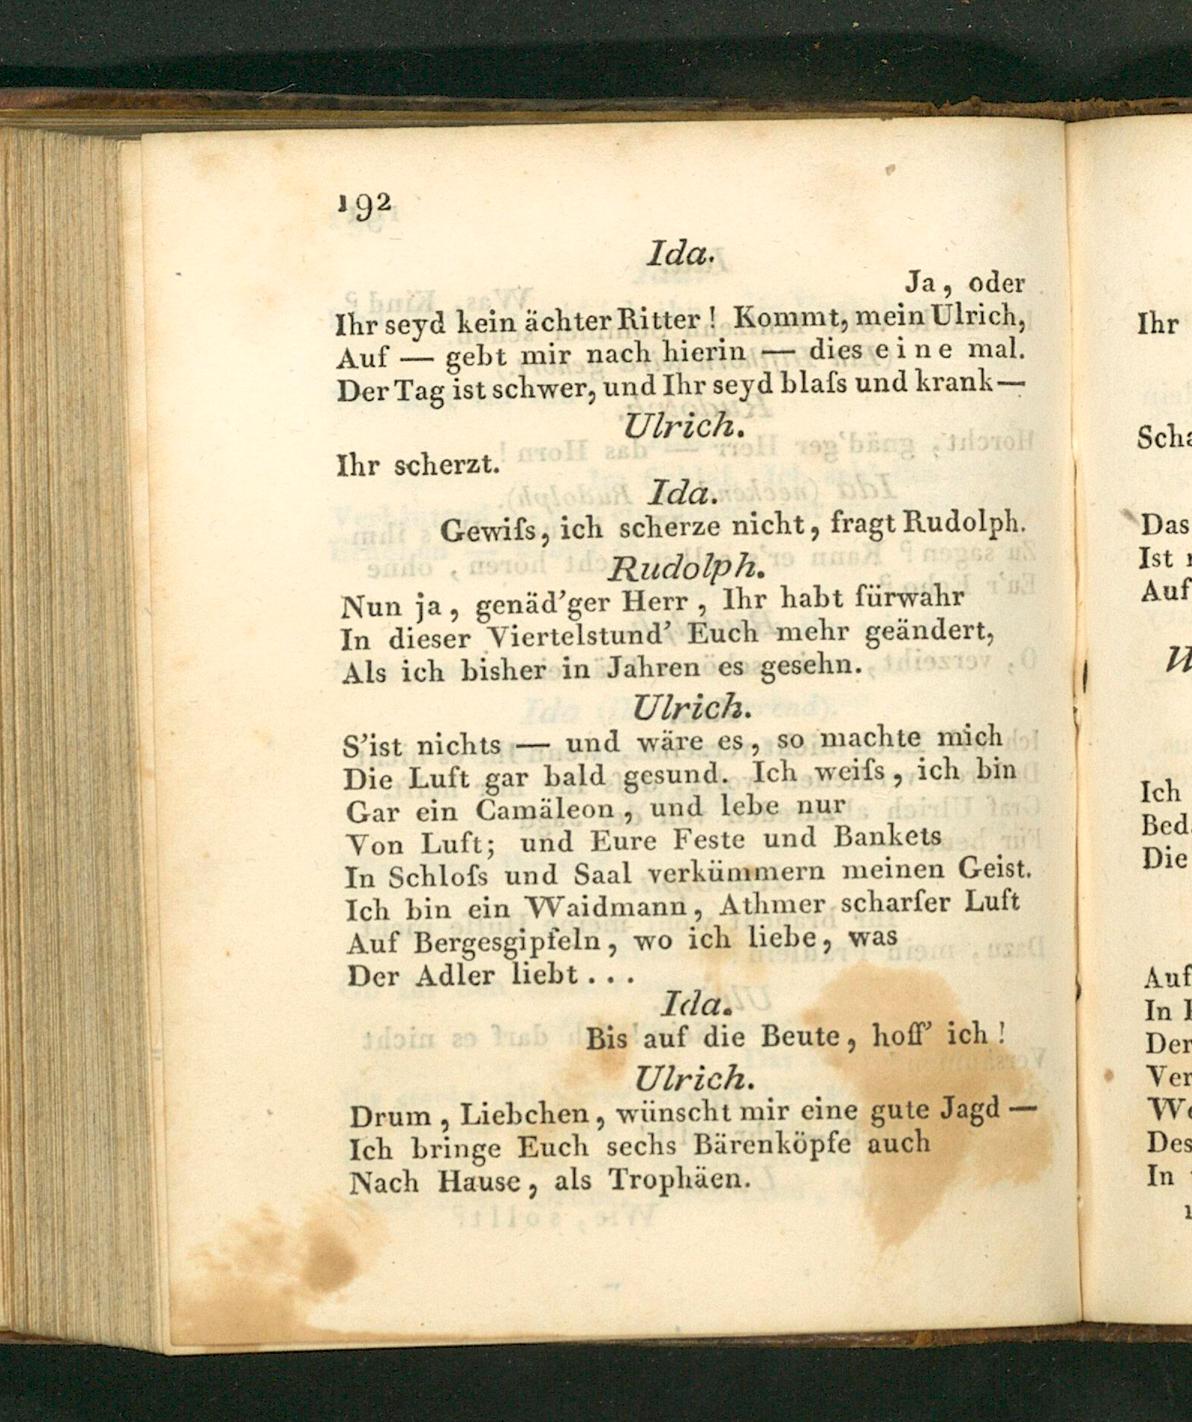 192
Ida.
Ja, oder
Ihr seyd kein ächter Ritter! Kommt, mein Ulrich,
Auf — gebt mir nach hierin — dies eine mal.
Der Tag ist schwer, und Ihr seyd blaſs und krank—
Ulrich.
Ihr scherzt.
Ida.
Gewiſs, ich scherze nicht, fragt Rudolph.
Rudolph.
Nun ja, genäd'ger Herr, Ihr habt fürwahr
In dieser Viertelstund' Euch mehr geändert,
Als ich bisher in Jahren es gesehn.
Ulrich.
S'ist nichts — und wäre es, so machte mich
Die Luft gar bald gesund. Ich weiſs, ich bin
Gar ein Camäleon, und lebe nur
Von Luft; und Eure Feste und Bankets
In Schloſs und Saal verkümmern meinen Geist.
Ich bin ein Waidmann, Athmer scharfer Luft
Auf Bergesgipfeln, wo ich liebe, was
Der Adler liebt...
Ida.
Bis auf die Beute, hoff' ich!
Ulrich.
Drum, Liebchen, wünscht mir eine gute Jagd —
Ich bringe Euch sechs Bärenköpfe auch
Nach Hause, als Trophäen.
Ihr
Das
Ist
Auf
Ich
Die
Auf
In
Der
In